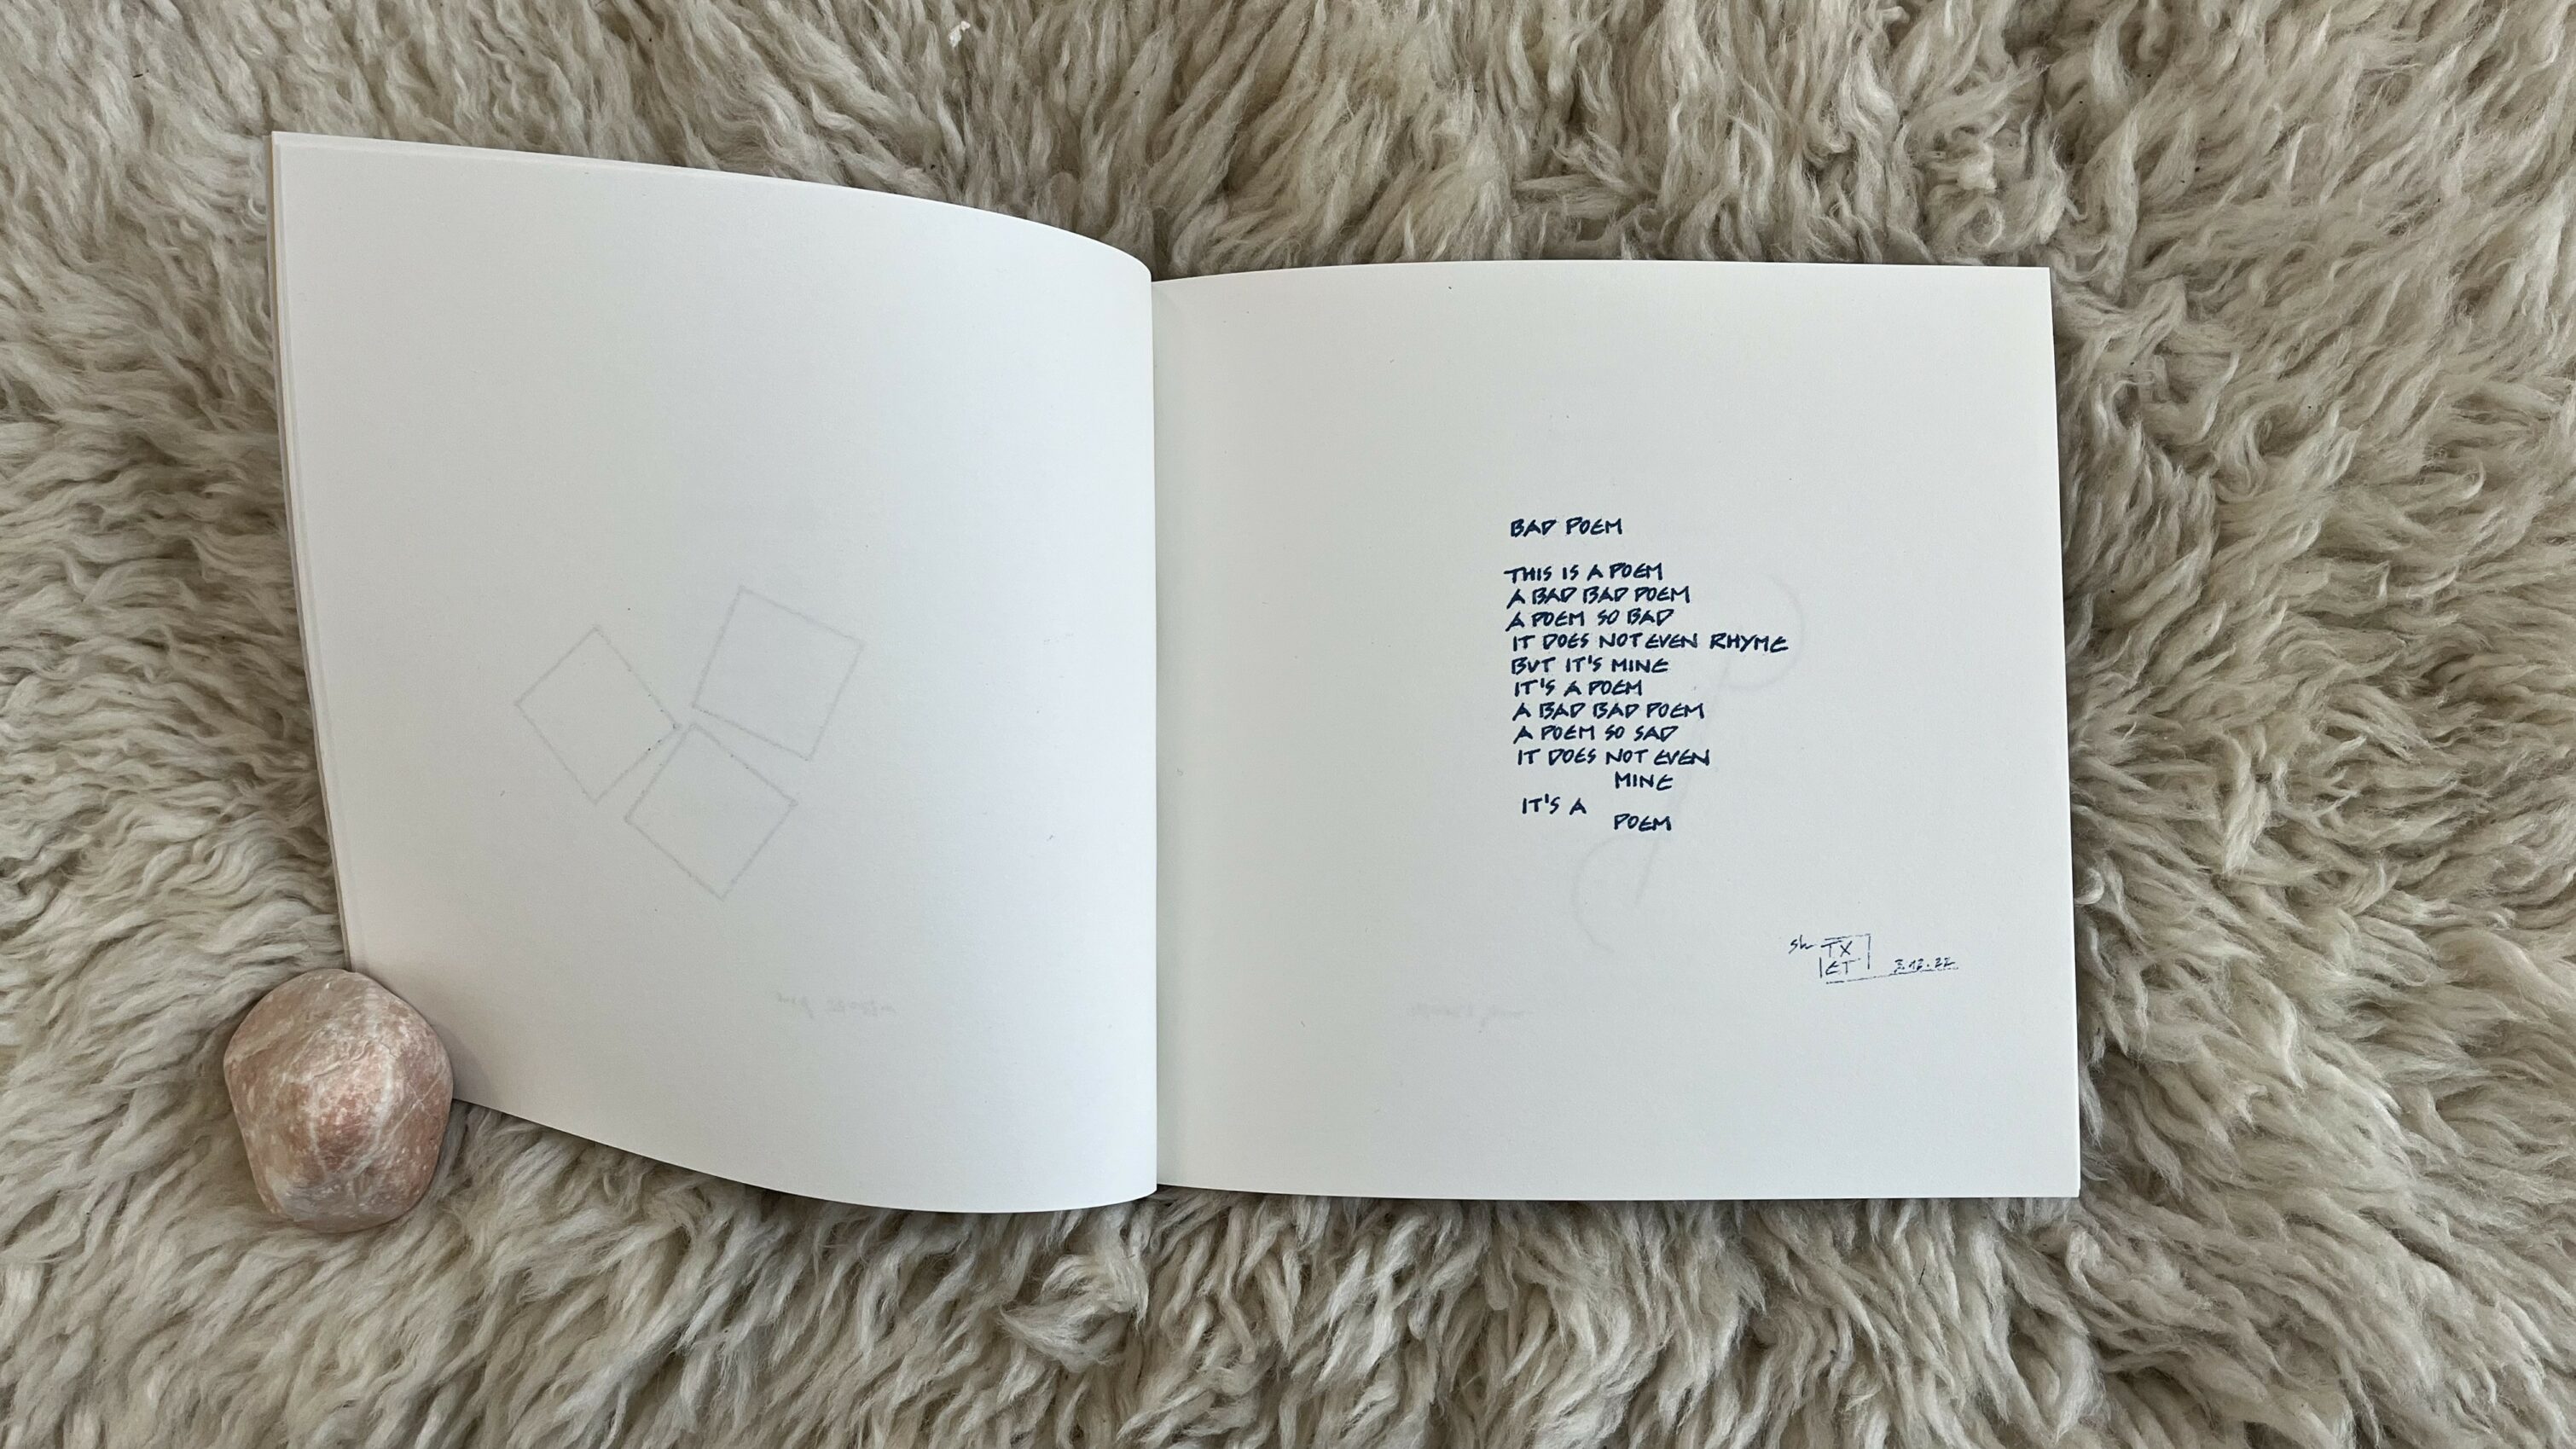 BAD POEM
THIS IS A POEM
A BAD BAD POEM
A POEM SO BAD
IT DOES NOT EVEN RHYME
BUT IT'S MINE
IT'S A POEM
A BAD BAD POEM
A POEM SO SAD
IT DOES NOT EVEN
MINE
IT'S A
POEM
TX